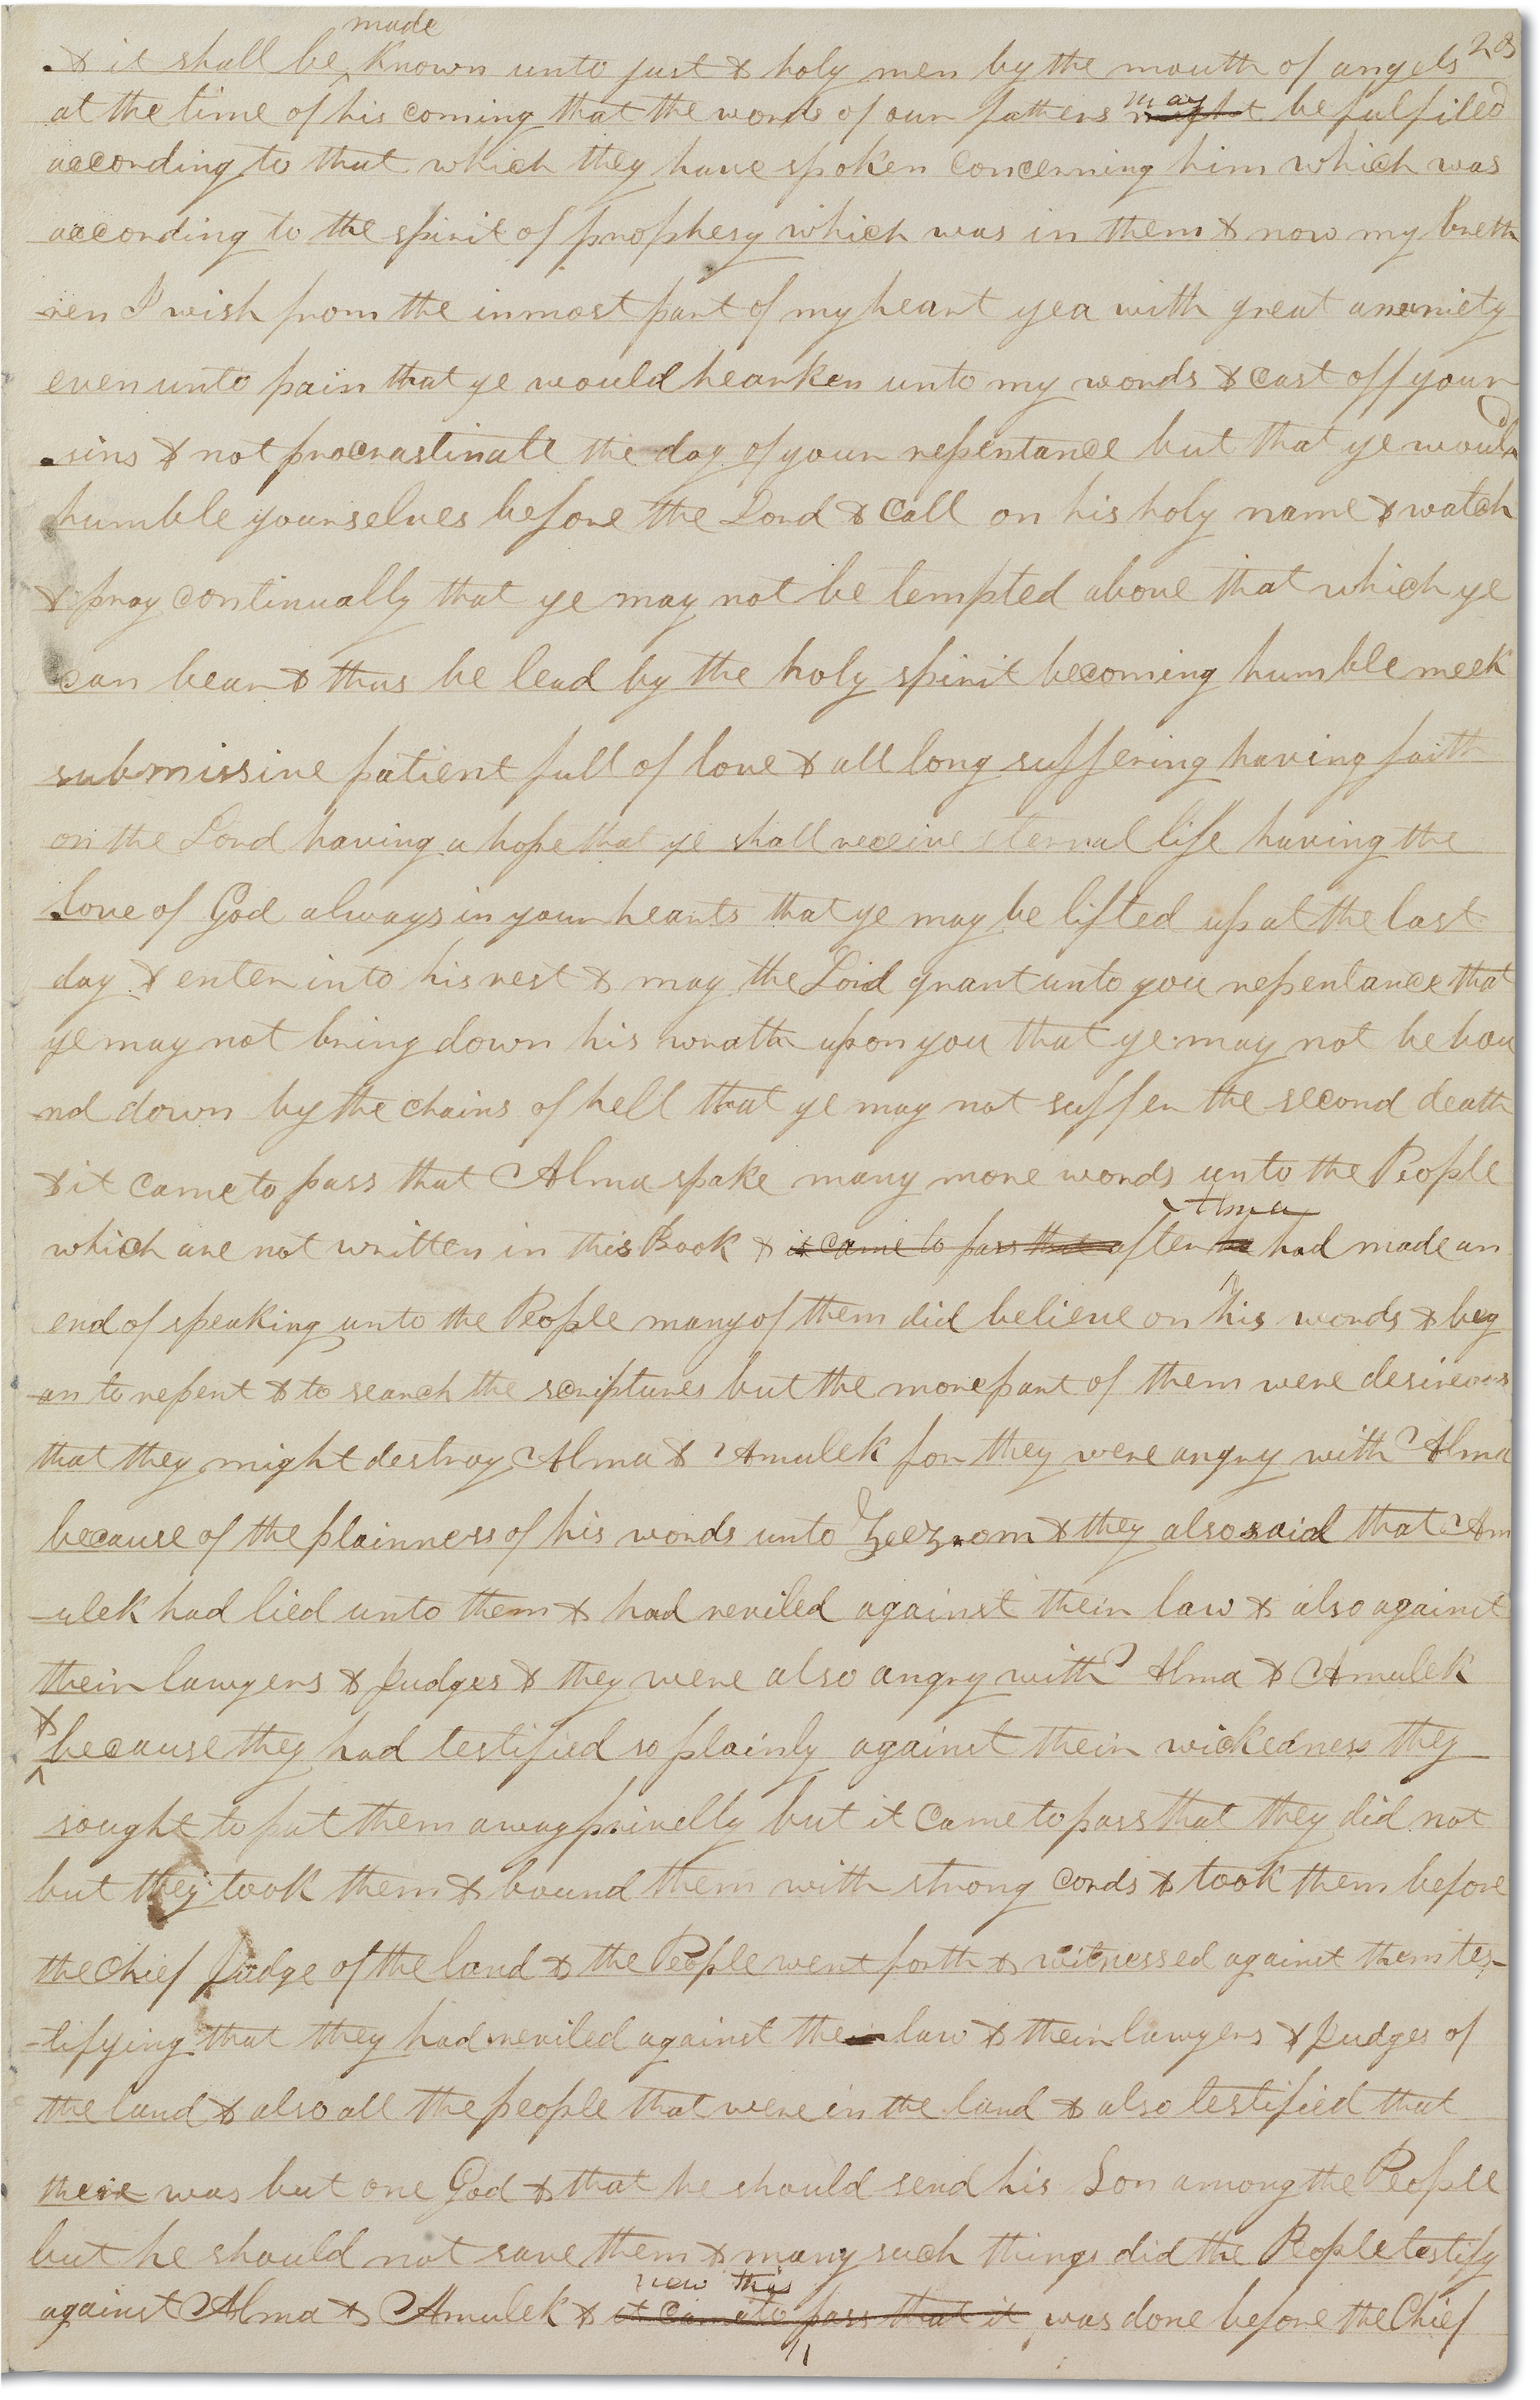 made
& it shall be known unto just & holy men by the mouth of angels
at the time of his coming that the words of our fathers may might be fulfiled
according to that which they have spoken concerning him which was
according to the spirit of prophesy which was in them & now my breth
ren I wish from the inmost part of my heart yea with great anxiety
even unto pain that ye would hearken unto my words & cast off your
sins & not procrastinate the day of your repentance but that ye would
humble yourselves before the Lord & call on his holy name & watch
& pray continually that ye may not be tempted above that which ye
can bear & thus be lead by the holy spirit becoming humble meek
submissive patient full of love & all long suffering having faith
on the Lord having a hope that ye shall receive eternal life having the
love of God always in your hearts that ye may be lifted up at the last
day & enter into his rest & may the Lord grant unto you repentance that
ye may not bring down his wrath upon you that ye may not be bou
nd down by the chains of hell that ye may not suffer the second death
& it came to pass that Alma spake many more words unto the People
which are not written in this Book & it came to pass that after he had made an
end of speaking unto the People many of them did believe on his words & beg
an to repent & to search the scriptures but the more part of them were desireous
that they might destroy Alma & Amulek for they were angry with Alma
because of the plainness of his words unto Zeezrom & they also said that Am
-ulek had lied unto them & had reviled against their law & also against
their lawyers & Judges & they were also angry with Alma & Amulek
& because they had testified so plainly against their wickedness they
sought to put them away privelly but it came to pass that they did not
but they took them & bound them with strong cords & took them before
the chief Judge of the land & the People went forth & witnessed against them tes-
-tifying that they had reviled against their law & their lawyers & Judges of
the land & also all the people that were in the land & also testified that
there was but one God & that he should send his Son among the People
but he should not save them & many such things did the People testify
now this
against Alma & Amulek & it came to pass that it was done before the Chief